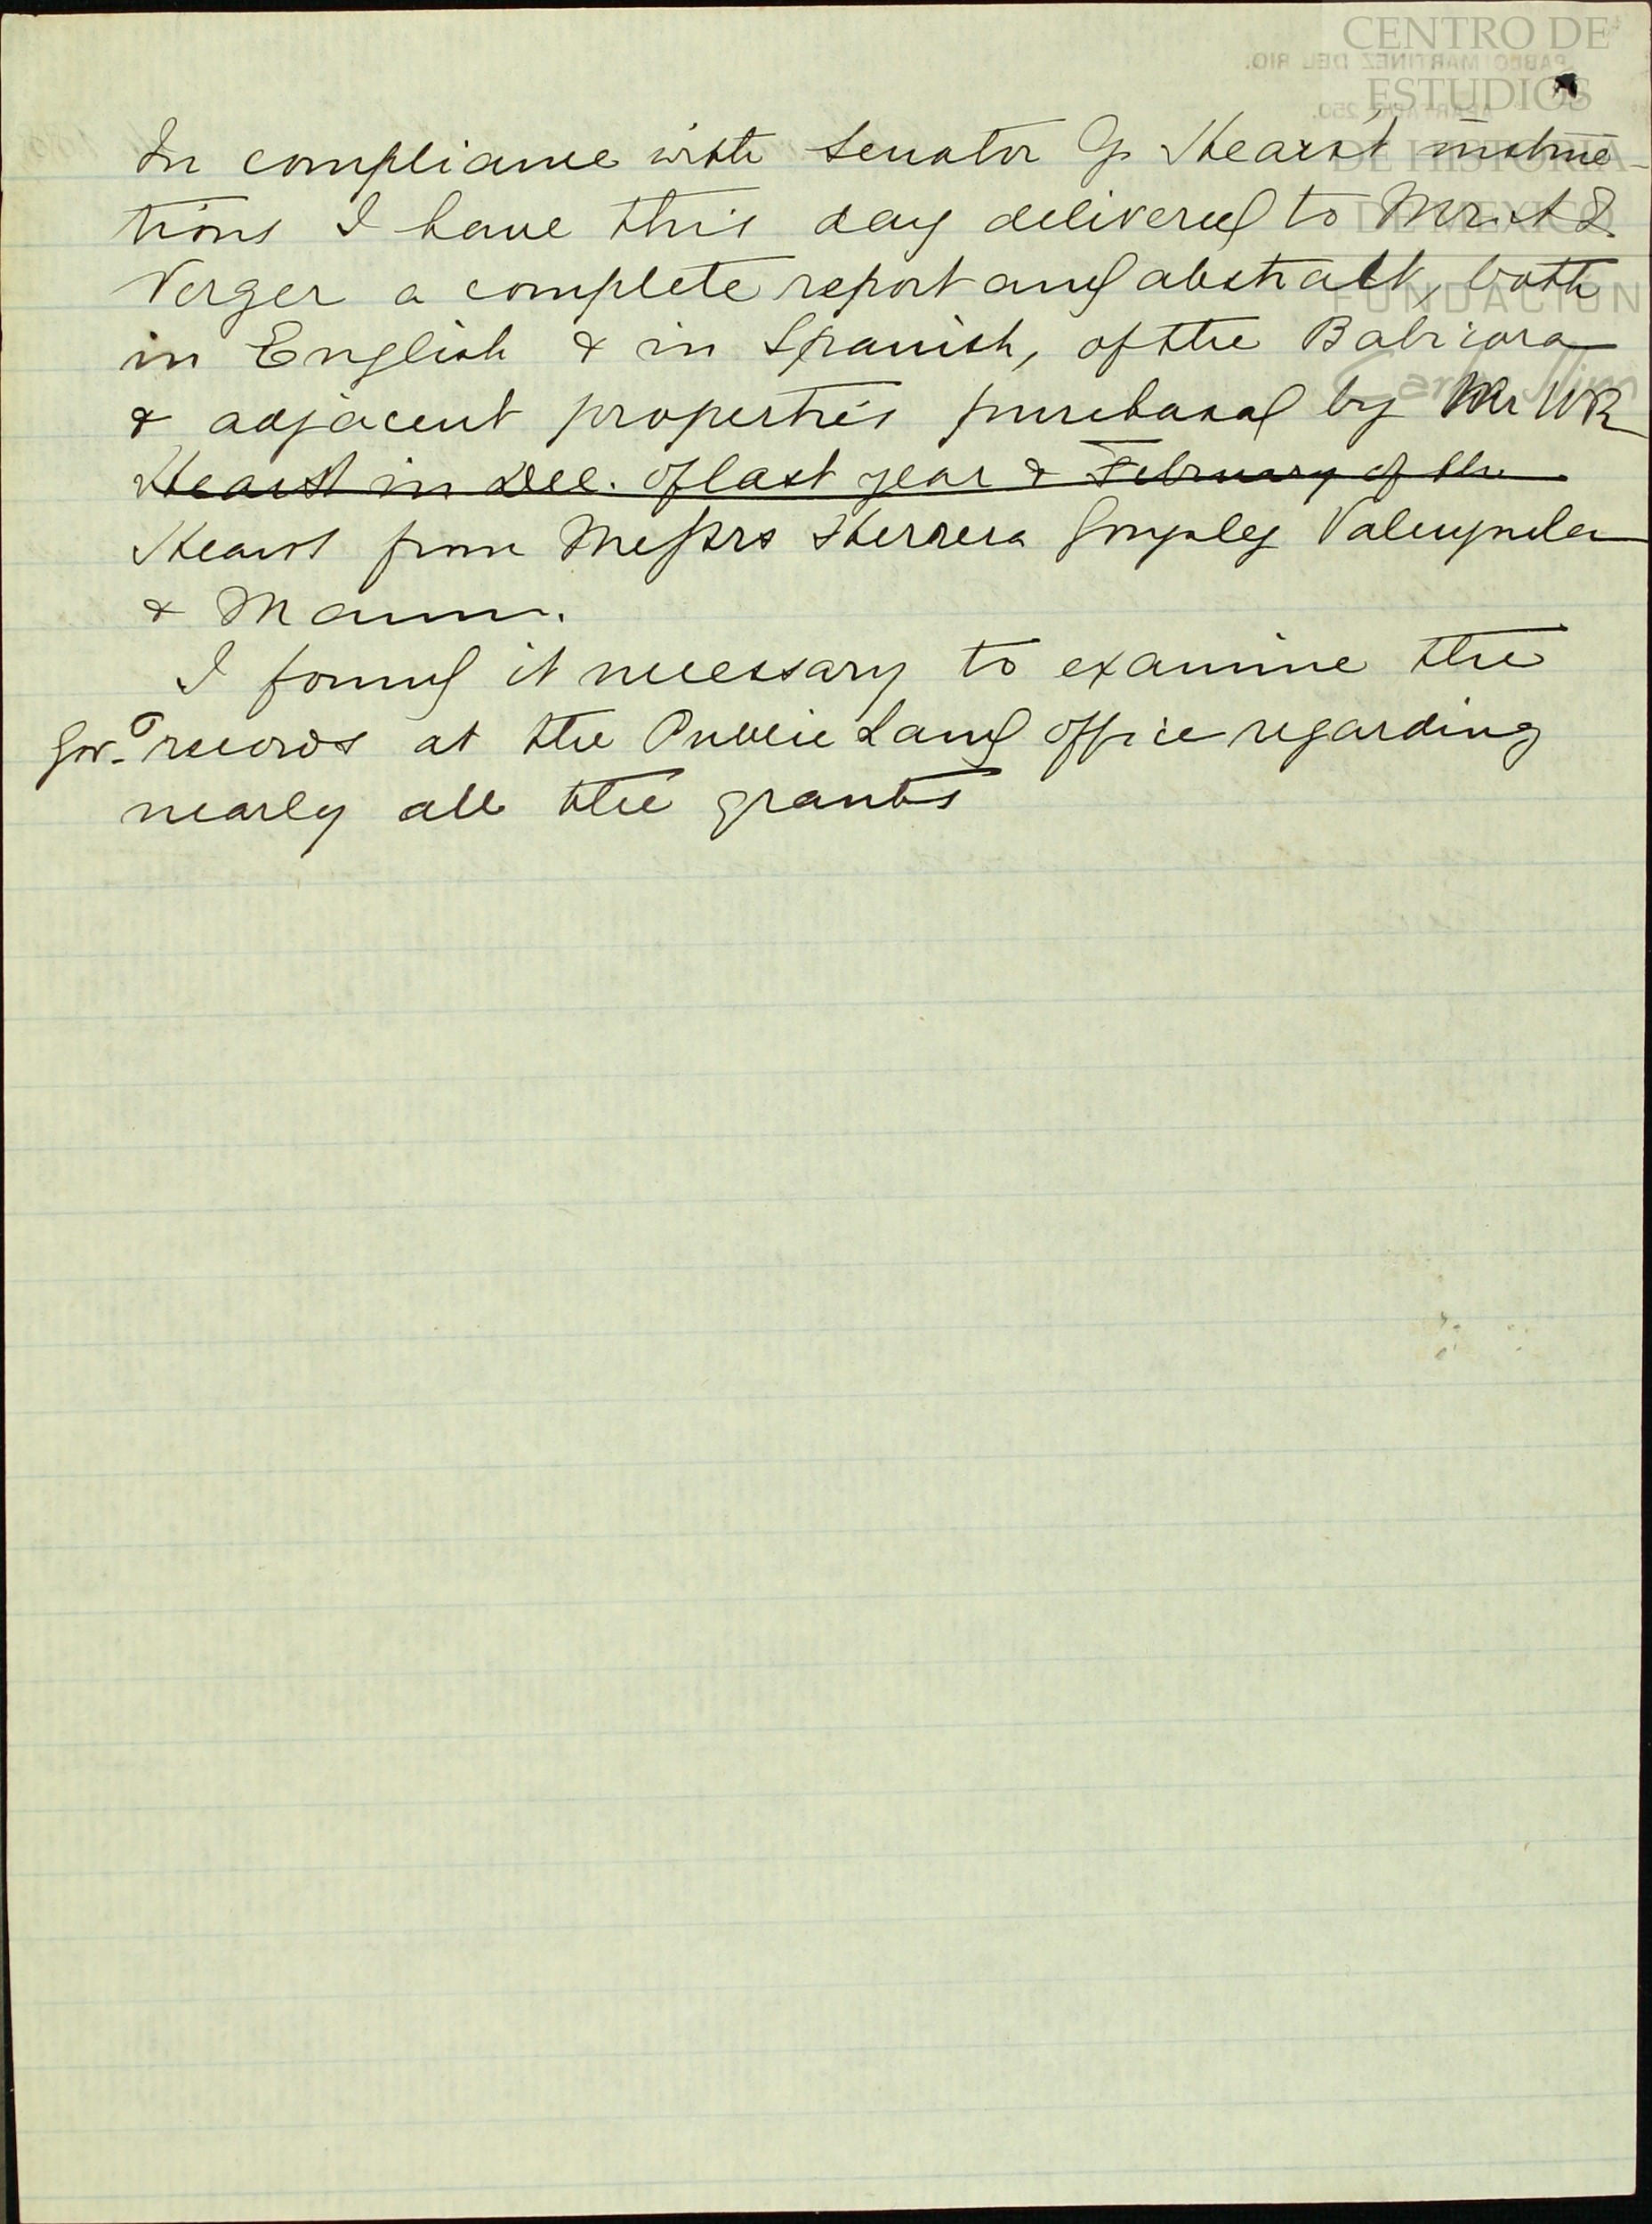 CENTRO DE
ESTUDIOS
DE HISTORIA
DE MEXICO
FUNDACION
Carlos Slim
PABLO MARTINEZ DEL RIO.
APARTADO 250.
In compliance with Senator G. Hearst's instruc-
tions I have this day delivered to Mr. A
Verger a complete report and abstract, both
in English & in Spanish, of the Babricora
& adjacent properties purchased by Mr WR
Hearst in Dec. of last year & February of the
Hearst from Messrs Herrera Gonzalez Valenzuela
& Mann.
I found it necessary to examine the
Gov.t records at the Public Land office regarding
nearly all the grants